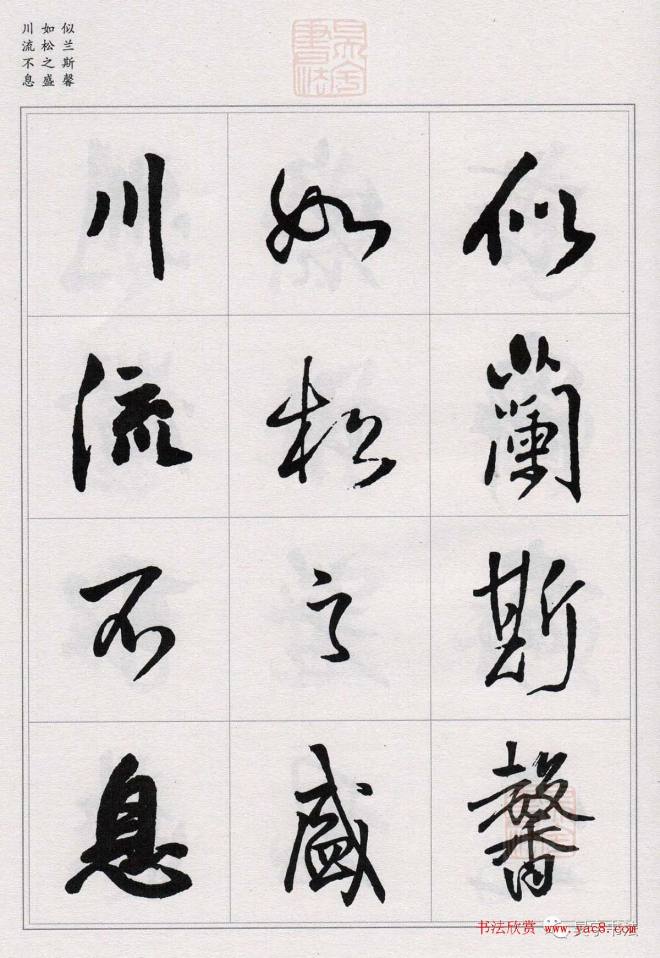 似兰斯馨
如松之盛
川流不息
似蘭斯馨
如松之盛
川流不息
书法欣赏 www.yac8.com